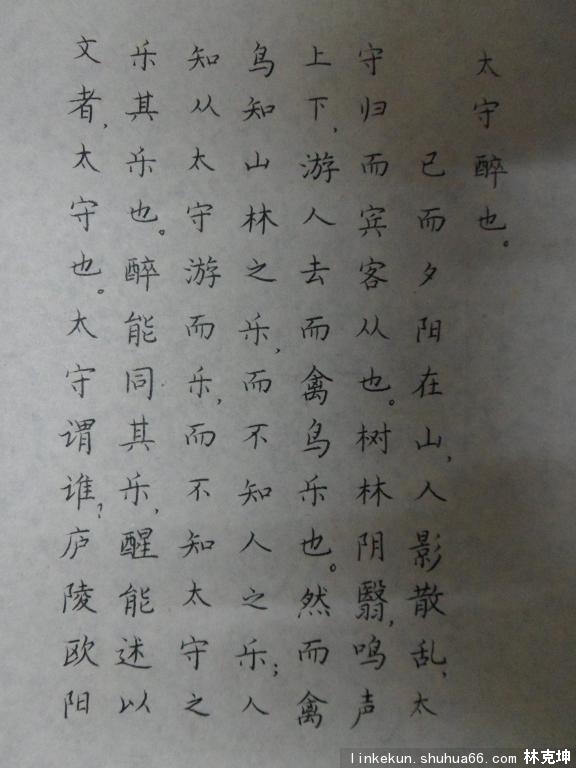 太守醉也。
已而夕阳在山，人影散乱，太
守归而宾客从也。树林阴翳，鸣声
上下，游人去而禽鸟乐也。然而禽
鸟知山林之乐，而不知人之乐；人
知从太守游而乐，而不知太守之
乐其乐也。醉能同其乐，醒能述以
文者，太守也。太守谓谁？庐陵欧阳
linkekun.shuhua66.com 林克坤